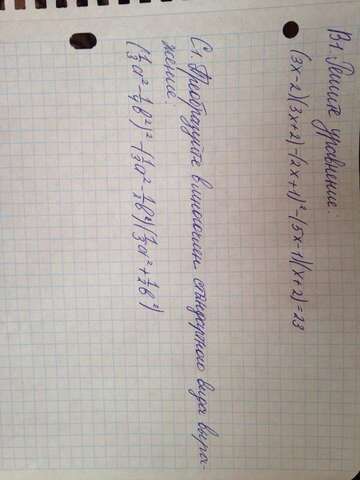 В1. Решите уравнение:
(3x-2)(3x+2)-(2x+1)²-(5x-1)(x+2)=23
С1. Преобразуйте в многочлен стандартного вида выра-
жение:
(⅓a²-¼b²)²-(⅓a²-½b²)(⅓a²+½b²)